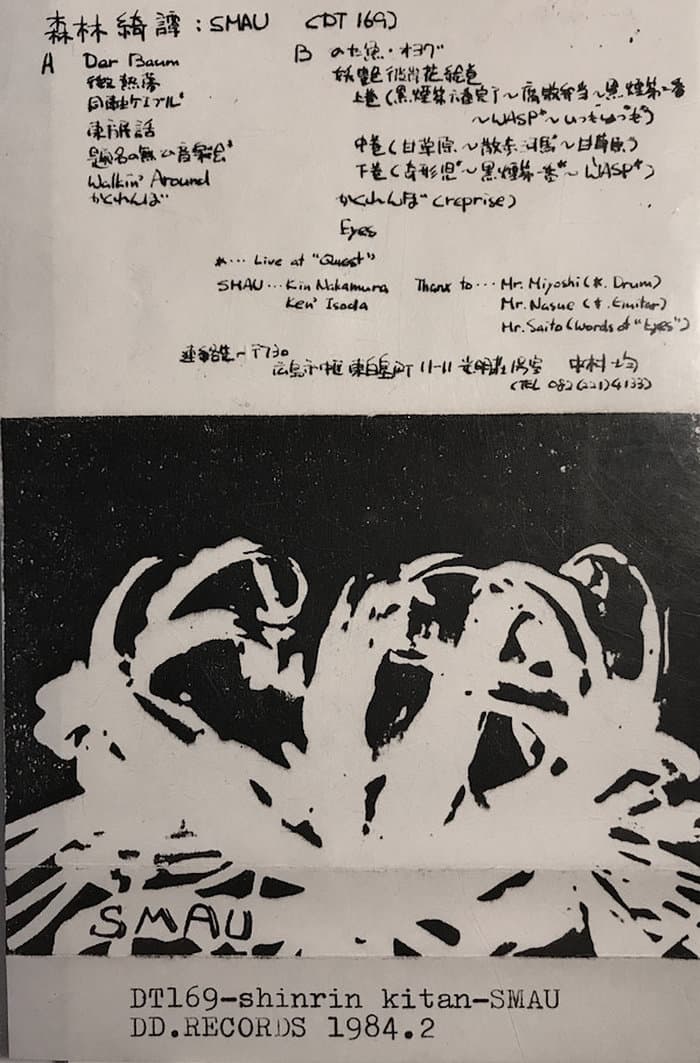 森林綺譚：SMAU （DT 169）
A Dar Baum
微熱夢
同軸ケーブル*
東方民話
題名の無い音楽会*
Walkin' Around
かくれんぼ
B のた魚・オヨグ
妖艶彼岸花絵巻
上巻（黒煙第六番完了〜腐敗弁当〜黒煙第二番
〜WASP*〜いつもいつも*）
中巻（甘草原〜散歩河馬〜甘草原）
下巻（奇形児*〜黒煙第一番*〜WASP*）
かくれんぼ（reprise）
Eyes
*… Live at "Quest"
SMAU … Kin Nakamura
Ken' Isoda
Thanx to … Mr. Miyoshi (*. Drum)
Mr. Nasue (*. Emitar)
Mr. Saito (words of "Eyes")
連絡先〜〒730
広島市中区東白島町 11-11 光明荘 号室 中村 均
（TEL 082(221)4133）
SMAU
DT169-shinrin kitan-SMAU
DD.RECORDS 1984.2